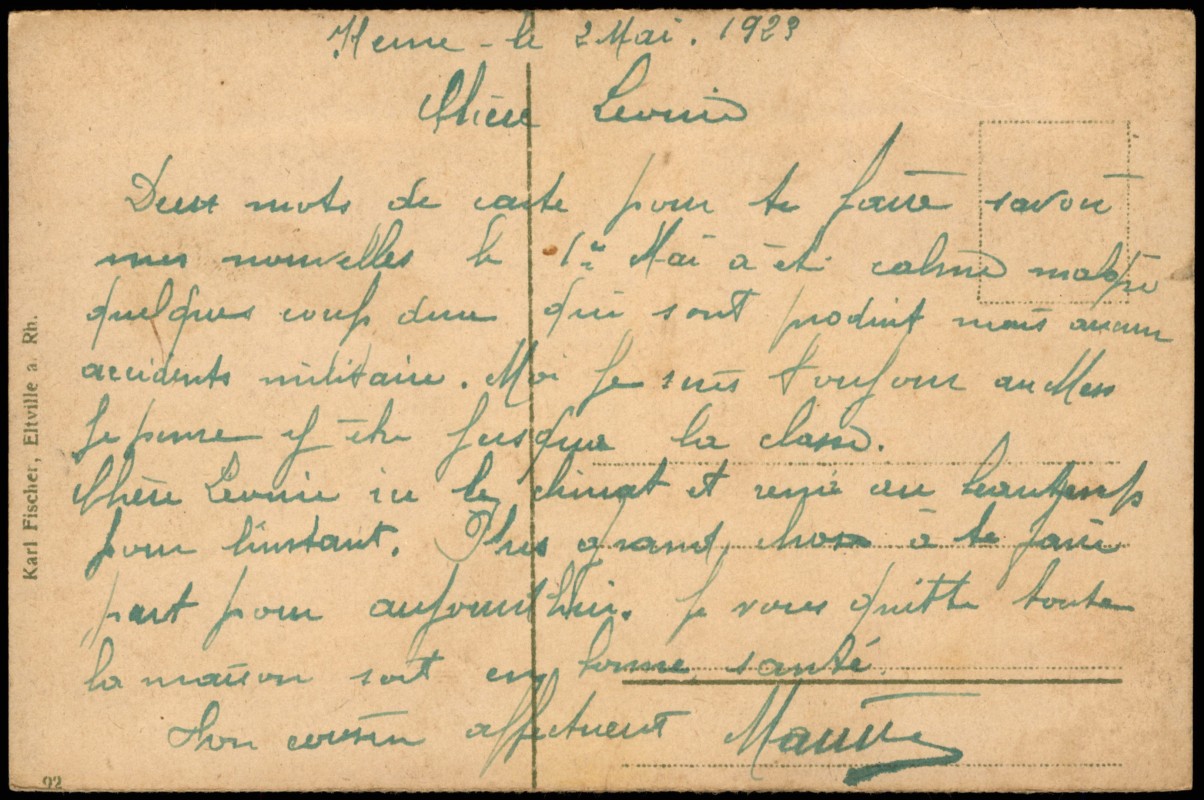 Herne - le 2 Mai. 1923
Chère Leonie
Deux mots de carte pour te faire savoir
mes nouvelles le 1er Mai à été calme malgré
quelques coup que qui sont produit mais aucun
accidents militaire. Moi Je suis toujour au Mess
Je pense y être Jusque la classe.
Chère Leonie ici le climat et remi au beautemps
pour l'instant. Plus grand chose à te faire
part pour aujourd'hui. Je vous quitte toute
la maison soit en bonne santé.
Ton cousin affectueux Maurice
Karl Fischer, Eltville a. Rh.
92